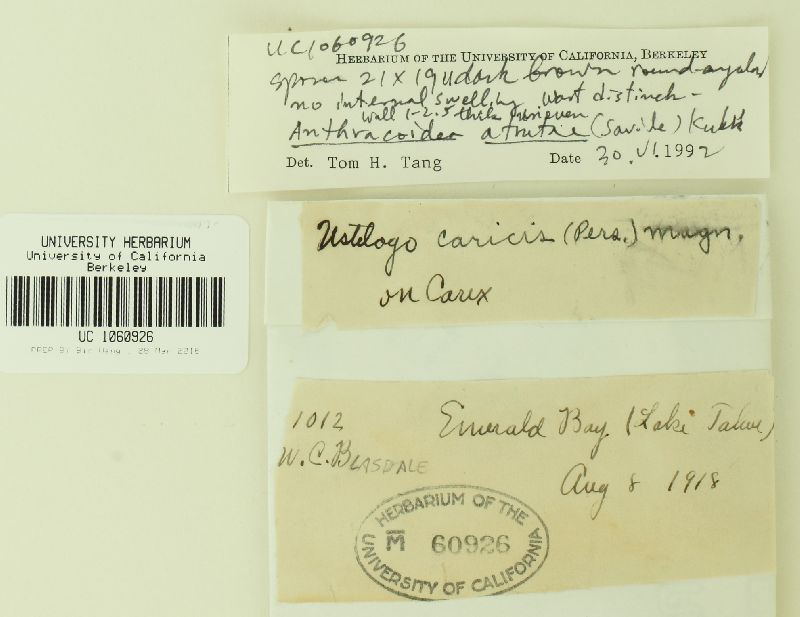 UC1060926
HERBARIUM OF THE UNIVERSITY OF CALIFORNIA, BERKELEY
Spores 21 X 19u dark brown round-angular
no internal swelling wart distinct -
wall 1-2.5 thick
Anthracoidea atratae (Savile) Kukk
Det. Tom H. Tang Date 30.VI.1992
Ustilogo caricis (Pers.) magn.
on Carex
UNIVERSITY HERBARIUM
University of California
Berkeley
UC 1060926
28 Mar 2016
1012 Emerald Bay (Lake Tahoe)
W.C. BLASDALE
Aug 8 1918
HERBARIUM OF THE
M 60926
UNIVERSITY OF CALIFORNIA